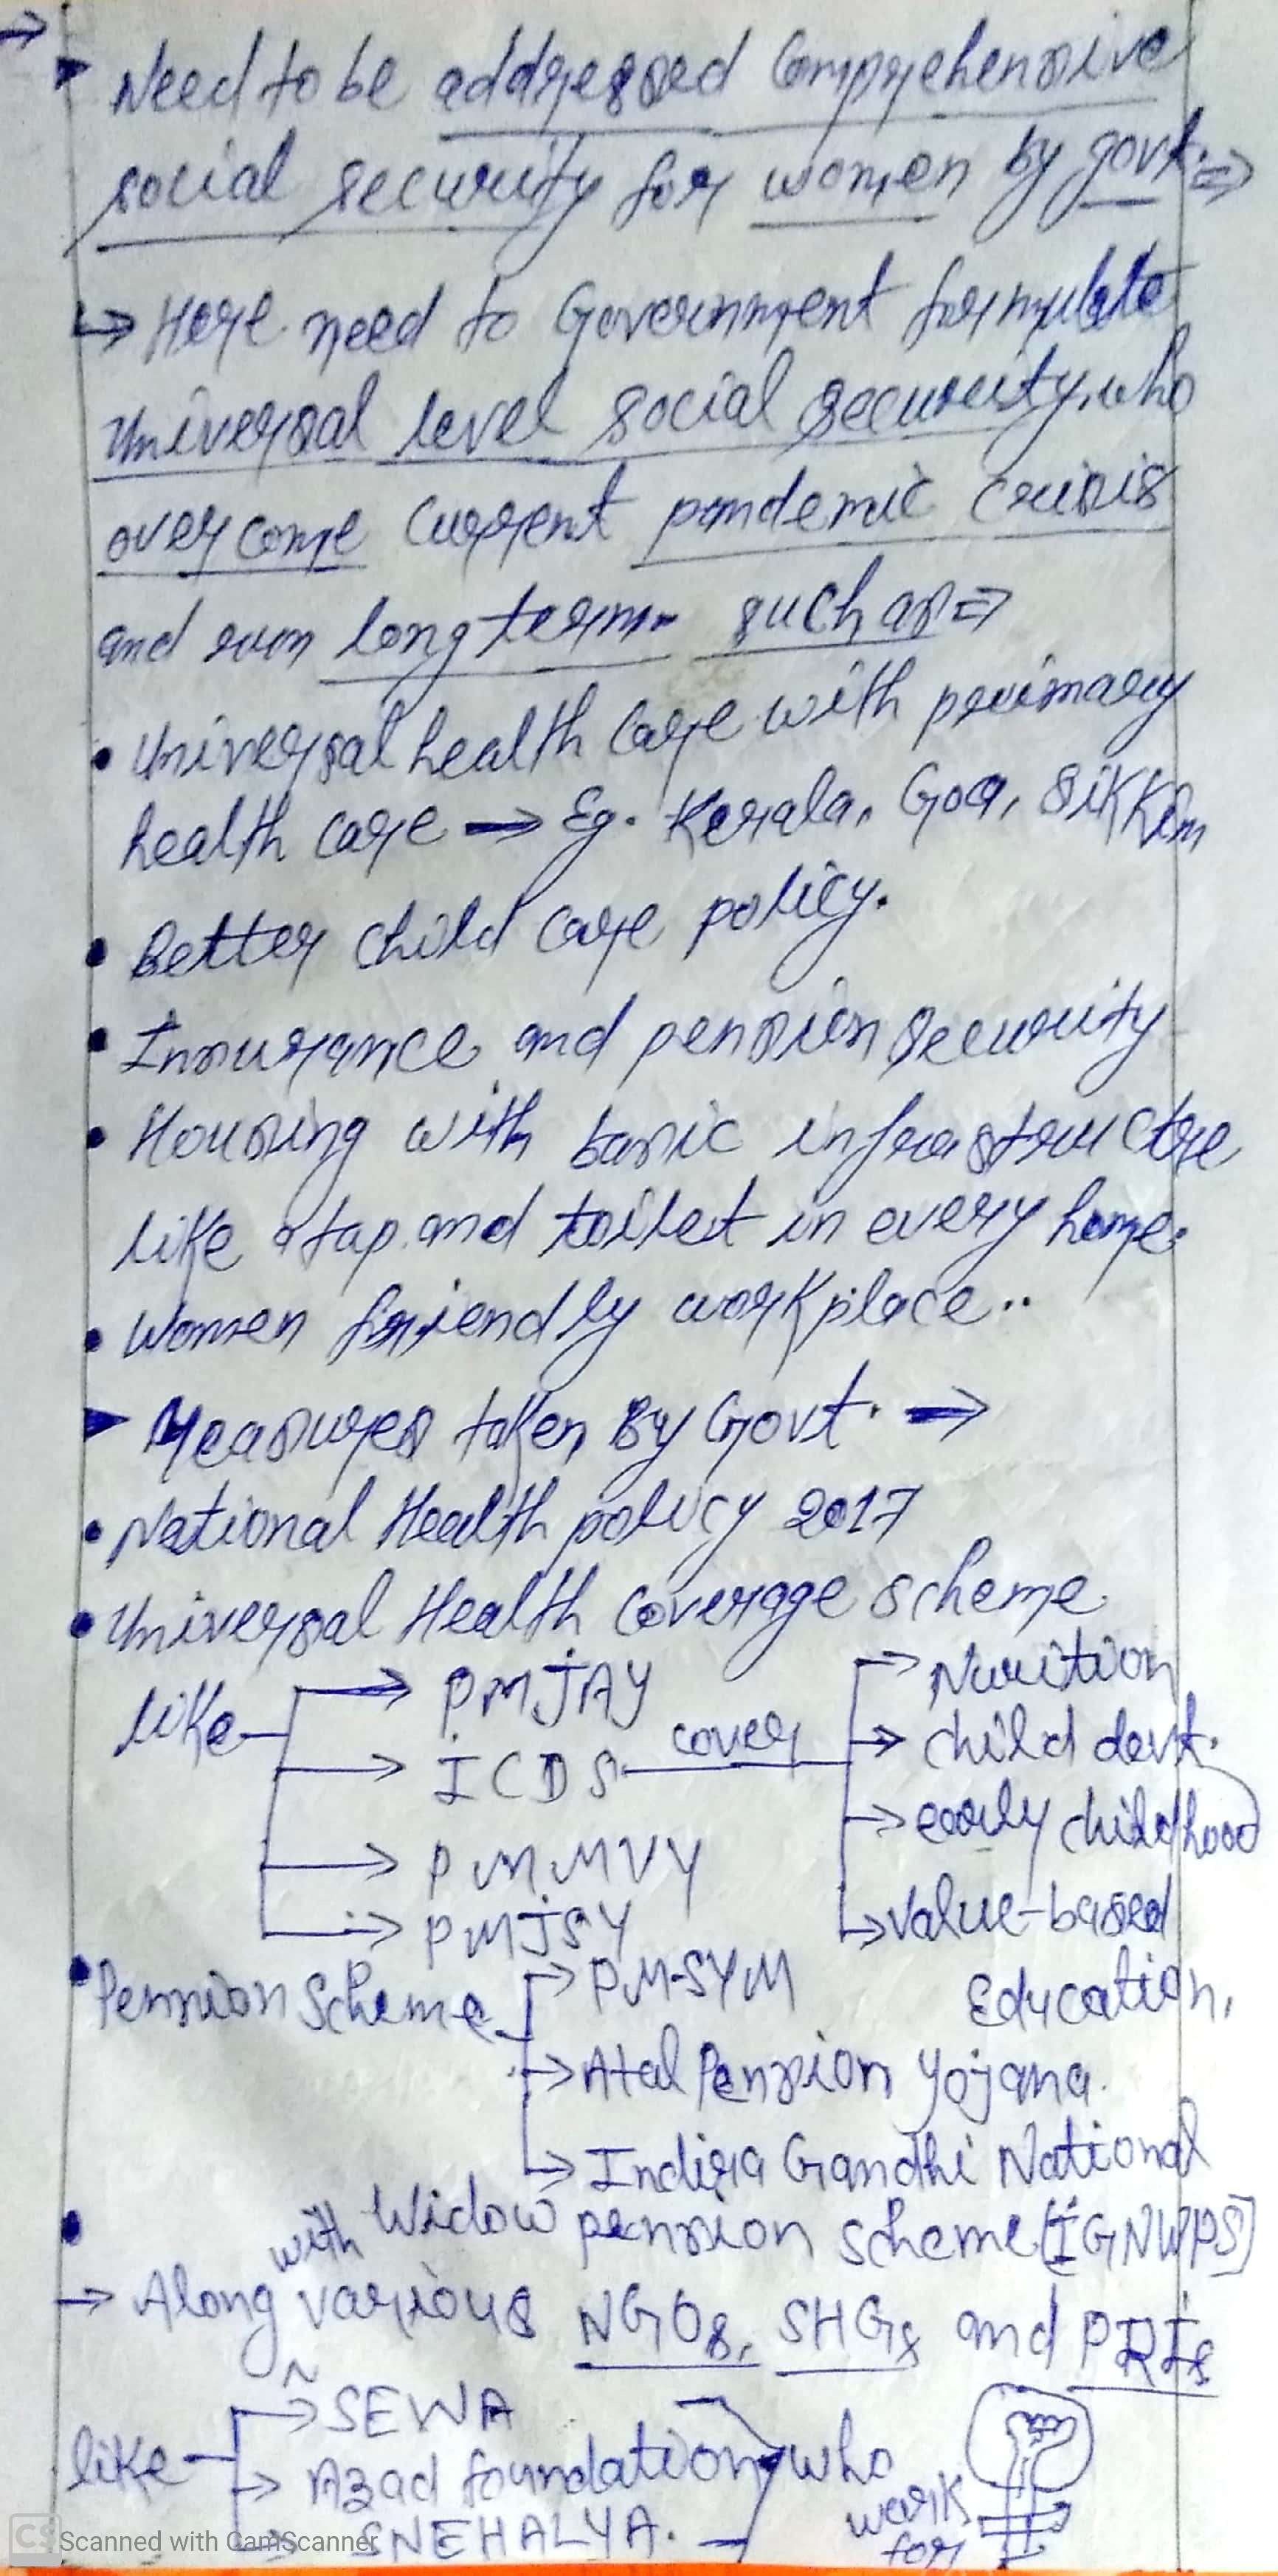 Need to be addressed Comprehensive
social security for women by govt. ⇒
↳ Here need to Government formulate
Universal level social security, who
overcome current pandemic crisis
and run long term such as ⇒
• Universal health care with primary
health care → Eg. Kerala, Goa, Sikkim
• Better child care policy.
• Insurance and pension security
• Housing with basic infrastructre
like tap and toilet in every home.
• Women friendly workplace..
▸ Measures taken By Govt. →
• National Health policy 2017
• Universal Health Coverage scheme
like → PMJAY
→ ICDS cover
→ PMMVY
→ PMJSY
→ Nurition
→ child devt.
→ early childhood
→ value-based
Education.
• Pension Scheme → PM-SYM
→ Atal Pension Yojana.
→ Indira Gandhi National
Widow pension scheme [IGNWPS]
→ Along with various NGOs, SHGs and PRIs
like → SEWA
→ Azad foundation
→ SNEHALYA.
who
work
for
CS Scanned with CamScanner